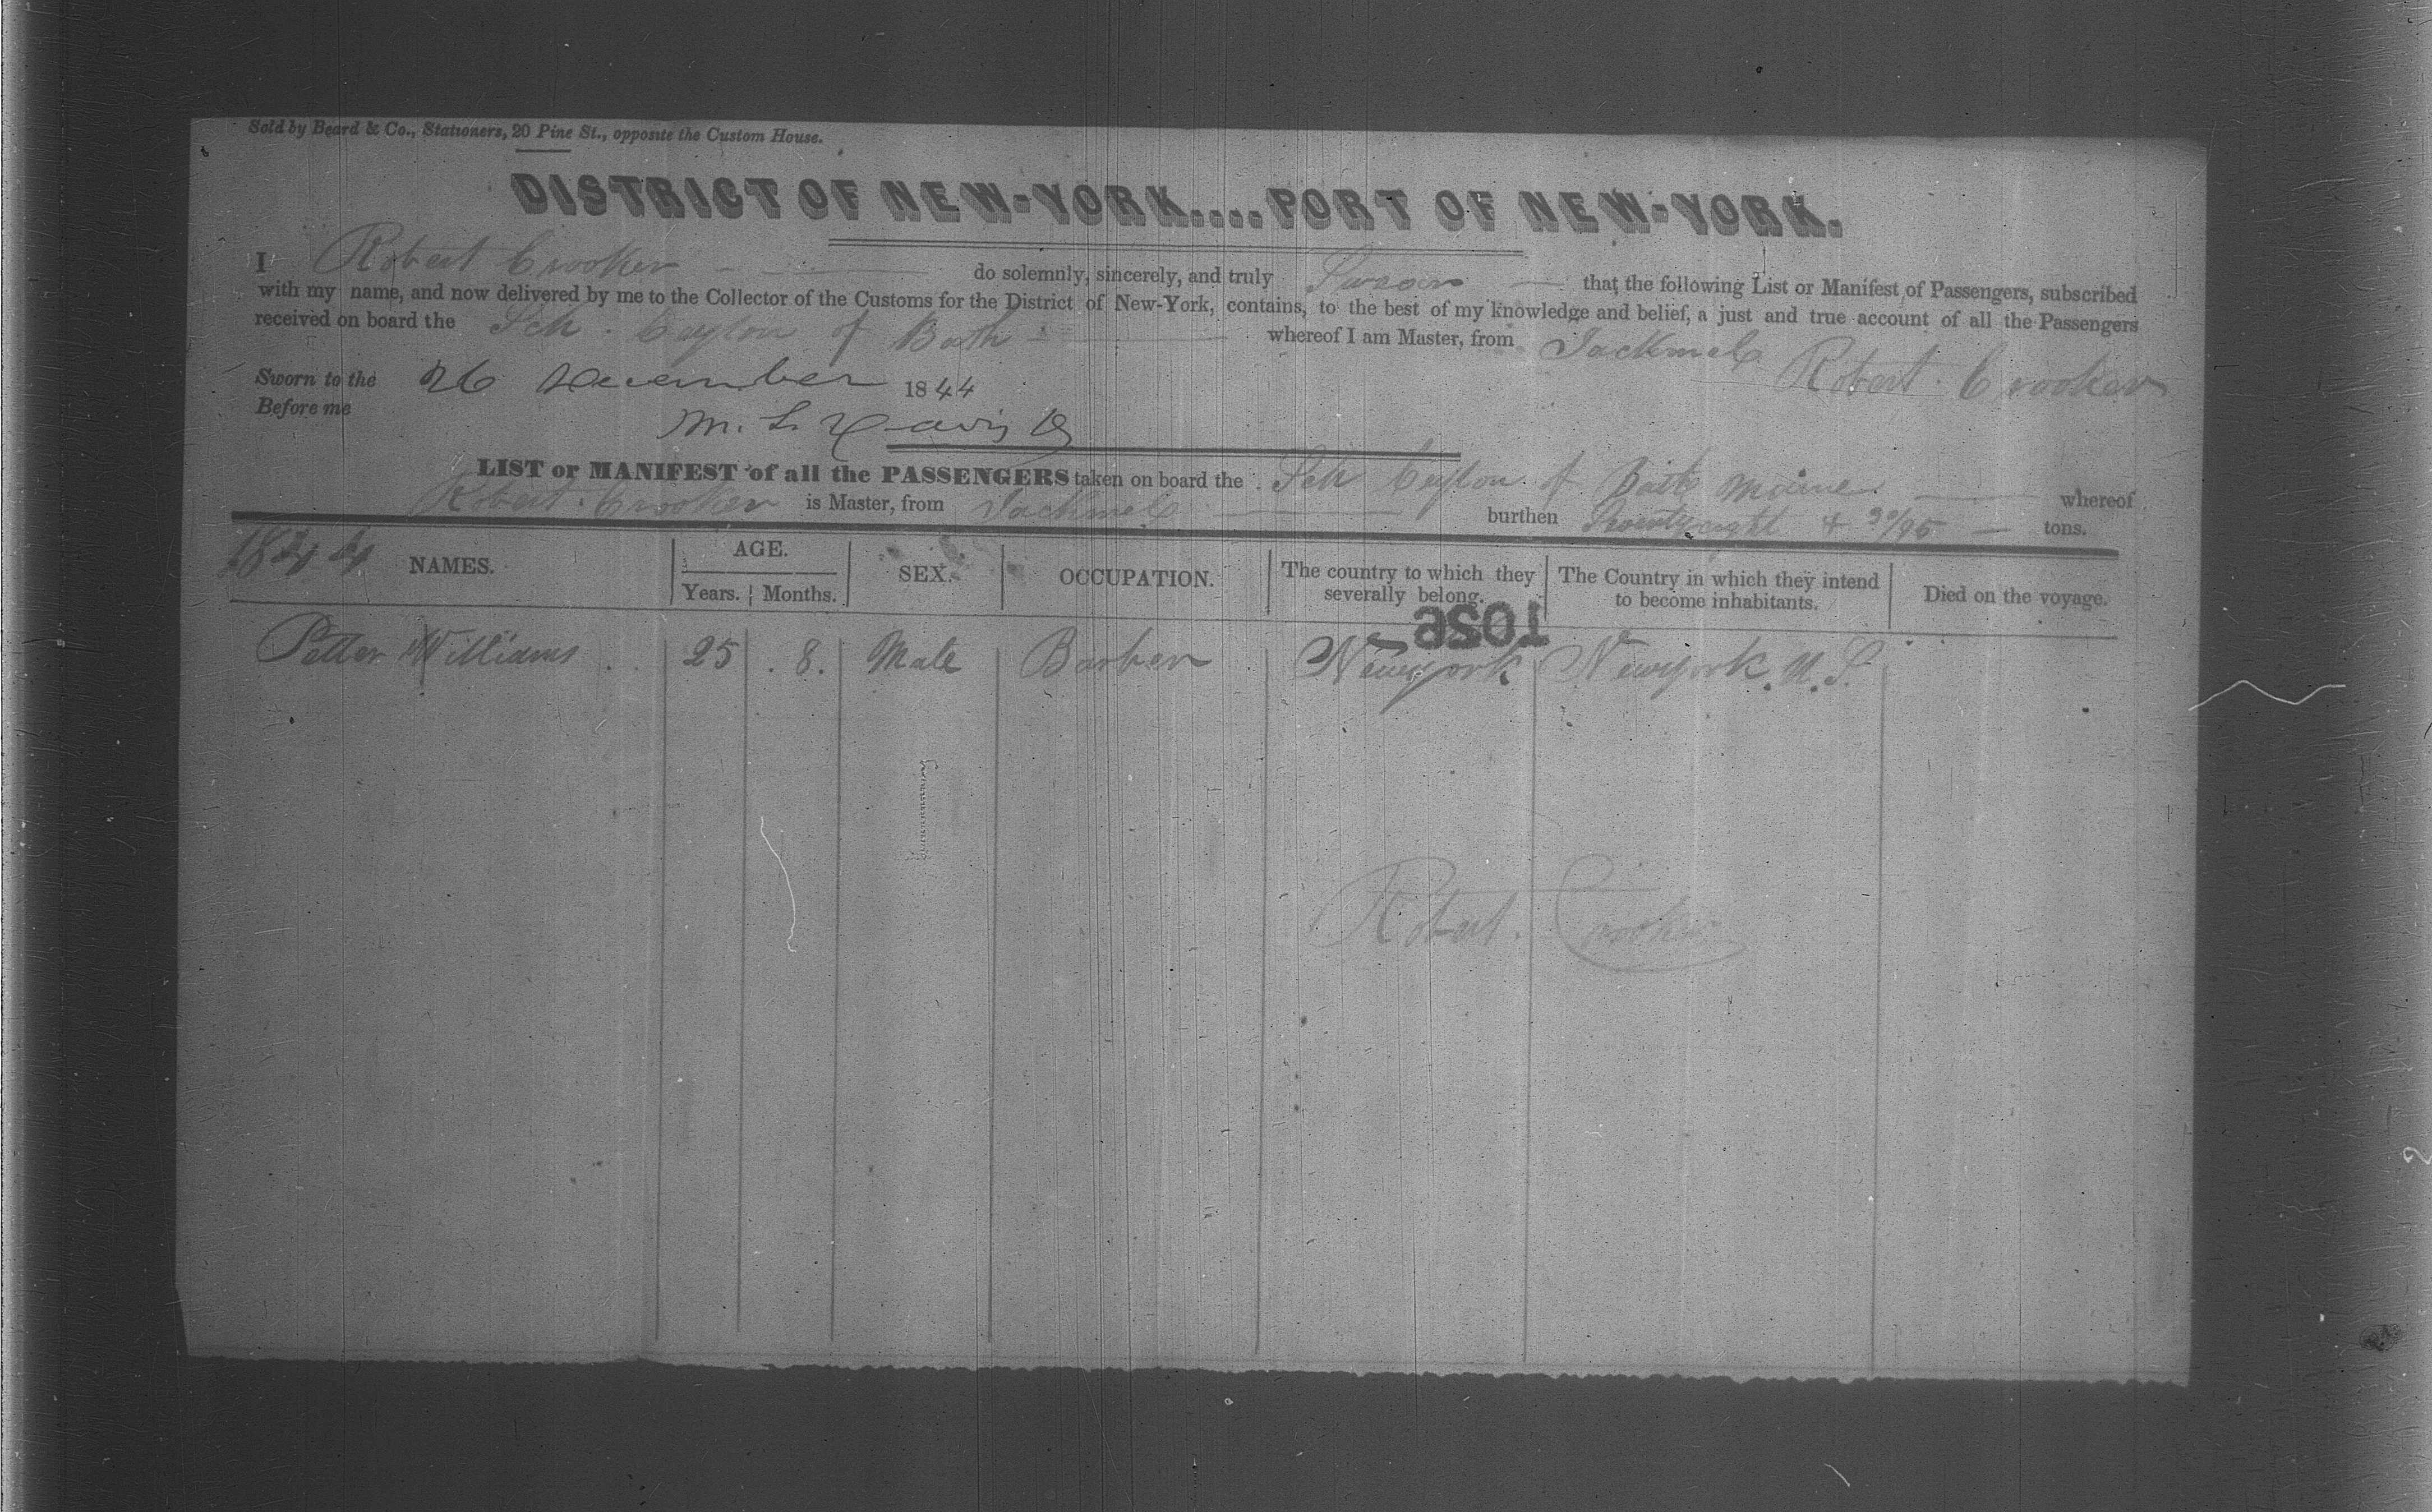 Sold by Beard & Co., Stationers, 20 Pine St., opposite the Custom House.
DISTRICT OF NEW-YORK....PORT OF NEW-YORK.
I Robert Crooker do solemnly, sincerely, and truly Swear that the following List or Manifest of Passengers, subscribed
with my name, and now delivered by me to the Collector of the Customs for the District of New-York, contains, to the best of my knowledge and belief, a just and true account of all the Passengers
received on board the Sch. Ceylon of Bath whereof I am Master, from Jackmel
Robert Crooker
Sworn to the 26 December 1844
Before me
M. L. Davis
LIST or MANIFEST of all the PASSENGERS taken on board the Sch Ceylon of Bath Maine whereof
Robert Crooker is Master, from Jackmel burthen eight & 30/95 tons.
1844 NAMES. AGE. Years. Months. SEX. OCCUPATION. The country to which they severally belong. The Country in which they intend to become inhabitants. Died on the voyage.
1056
Petter Williams 25 8. Male Barber Newyork Newyork. U. S.
Robert. Crooker